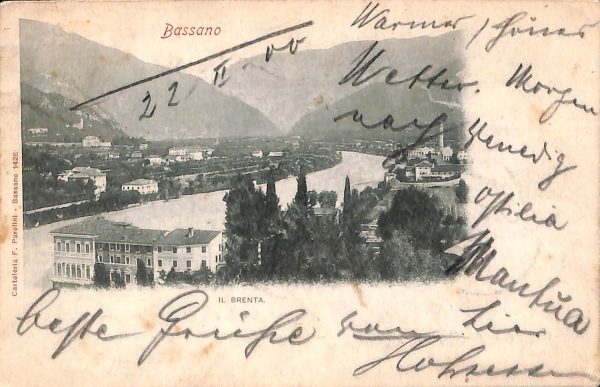 Bassano
22 II 00
Warmes, schönes
Wetter. Morgen
nach Venedig
ostilia
Mantua
IL BRENTA.
beste Grüße von hier
Cartoleria F. Parolini - Bassano 1426